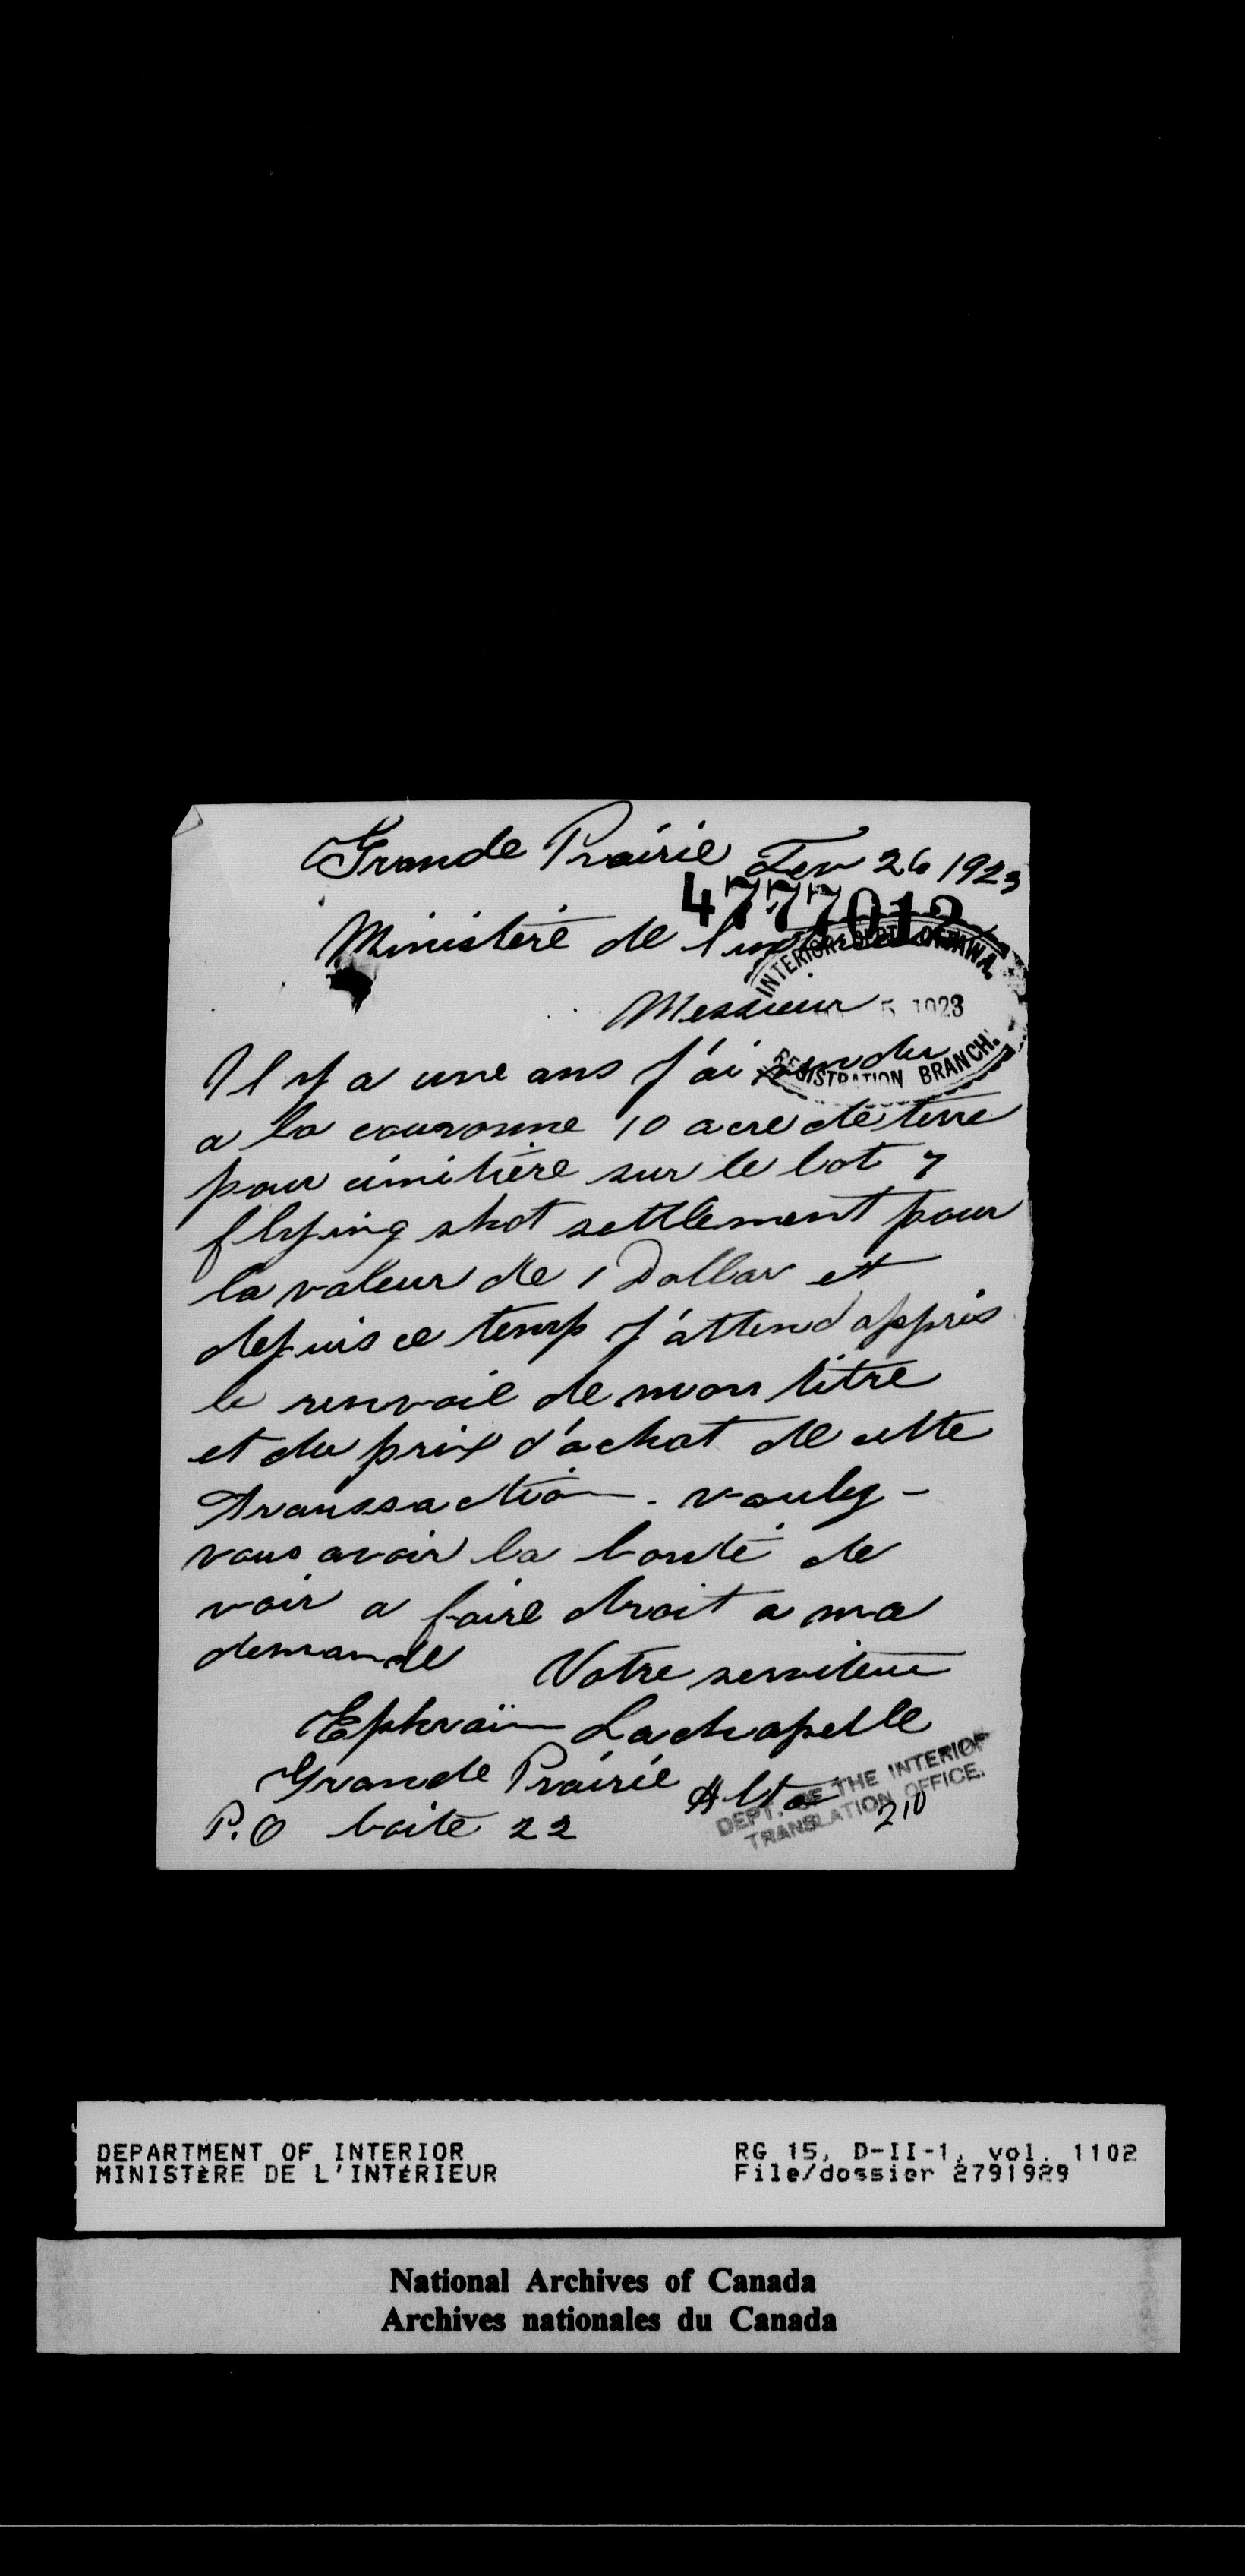 Grande Prairie Fev 26 1923
4777012
Ministère de l'
INTERIOR DEPT. OTTAWA.
Messieur
5 1923
REGISTRATION BRANCH.
Il y a une ans j'ai vendu
a la couronne 10 acre de terre
pour cimitière sur le lot 7
flying shot settlement pour
la valeur de 1 Dollar et
depuis ce temp j'attend apprès
le renvoil de mon titre
et du prix d'achat de cette
transsaction. vouley-
vous avoir la bonté de
voir a faire droit a ma
demande Votre serviteur
Ephraïm Lachapelle
Grande Prairie Alta
P.O boite 22
210
DEPT. OF THE INTERIOR
TRANSLATION OFFICE.
DEPARTMENT OF INTERIOR
MINISTÈRE DE L'INTÉRIEUR
RG 15, D-II-1, vol. 1102
File/dossier 2791929
National Archives of Canada
Archives nationales du Canada